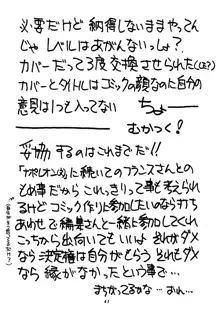 必要だけど納得しないままやってん
じゃレベルはあがんないっしょ?
カバーだって3度交換させられた(に?)
カバーとタイトルはコミックの顔なのに自分の
意見は1つも入ってない ちょー
むかつく!
妥協するのはこれまでだ!!
"ナポレオン"に描いてのフランスさんとの
もめ事だからこれっきりって事も考えられ
るけどコミック作りに参加したいのなら打ち
あわせで編集さんと一緒に参加してくれ
こっちから出向いてもいいよ それがダメ
なら決定権は自分がもらう それでダメ
なら縁がなかったという事で…
まちがってるかな… おれ…